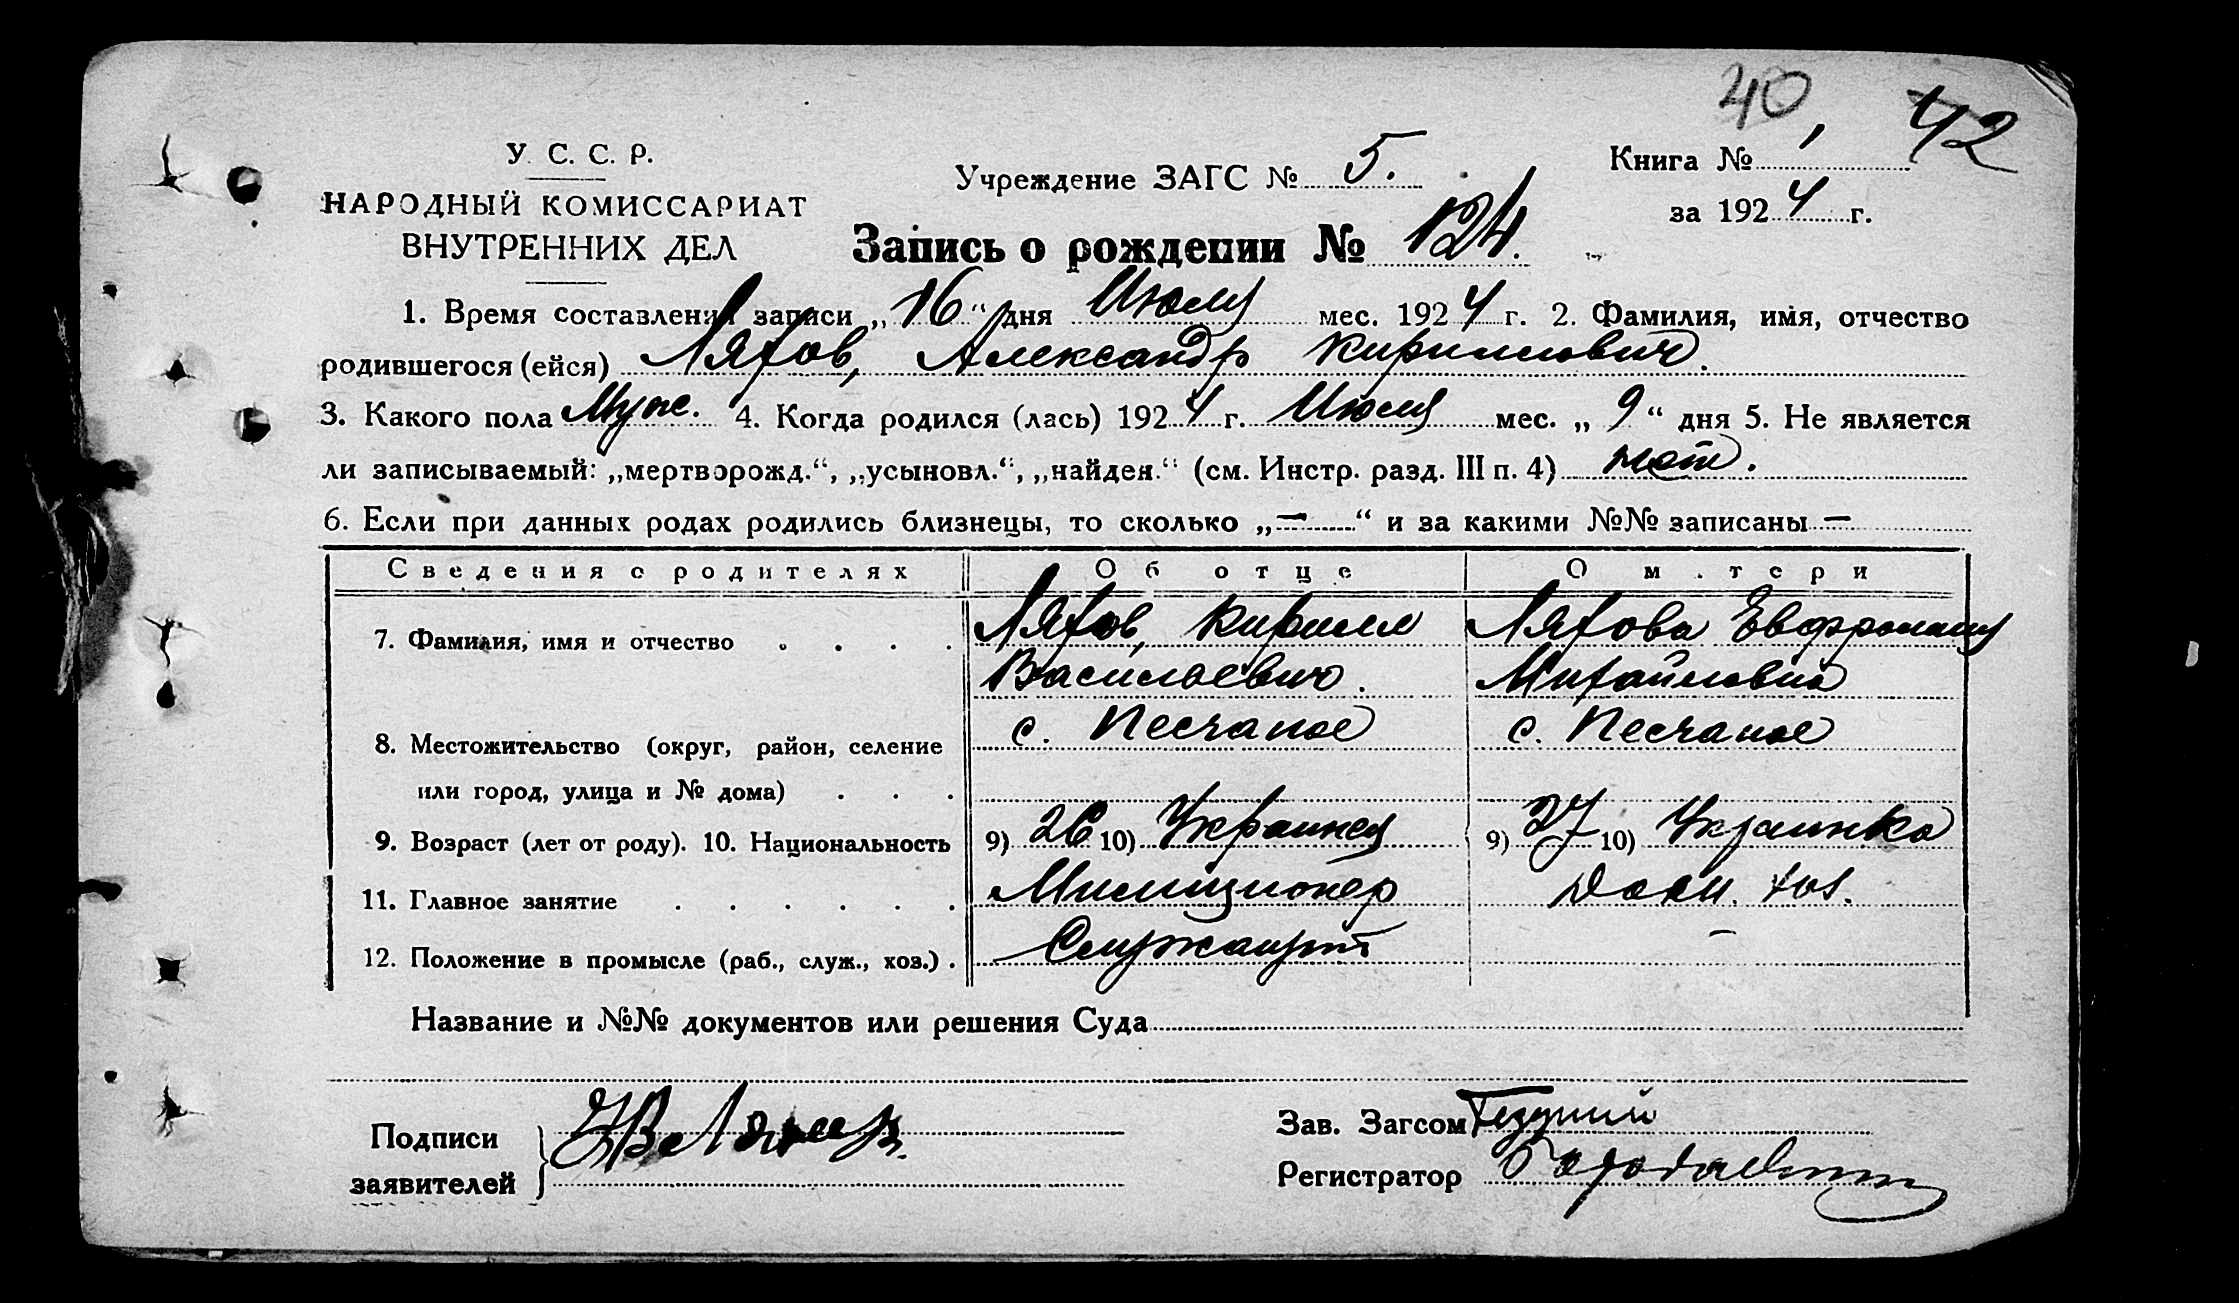 40
42
У. С. С. Р.
НАРОДНЫЙ КОМИССАРИАТ
ВНУТРЕННИХ ДЕЛ
Учреждение ЗАГС № 5.
Книга № 1
за 1924 г.
Запись о рождении № 124.
1. Время составления записи „16“ дня Июля мес. 1924 г. 2. Фамилия, имя, отчество
родившегося (ейся) Ляхов, Александр Кириллович.
3. Какого пола Муж. 4. Когда родился (лась) 1924 г. Июля мес. „9“ дня 5. Не является
ли записываемый: „мертворожд.“, „усыновл.“, „найден.“ (см. Инстр. разд. III п. 4) нет.
6. Если при данных родах родились близнецы, то сколько „—“ и за какими №№ записаны —
Сведения о родителях Об отце О матери
7. Фамилия, имя и отчество . . . . Ляхов, Кирилл Ляхова Евфросиния
Васильевич. Михайловна
8. Местожительство (округ, район, селение с. Песчаное с. Песчаное
или город, улица и № дома) . . .
9. Возраст (лет от роду). 10. Национальность 9) 26 10) Украинец 9) 27 10) Украинка
11. Главное занятие . . . . . . Милиционер Дом. хоз.
12. Положение в промысле (раб., служ., хоз.) . Служащий –
Название и №№ документов или решения Суда
Подписи
заявителей
Зав. Загсом
Регистратор